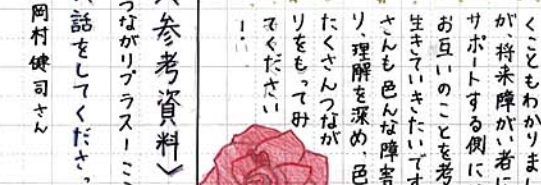 くこともわかりまし
が、将来障がい者に
サポートする側に
お互いのことを考
生きていきたいです
さんも色んな障害
り、理解を深め、色
たくさんつなが
りをもってみ
てください
！
〈参考資料〉
つながりプラスーこ
話をしてくださっ
岡村健司さん